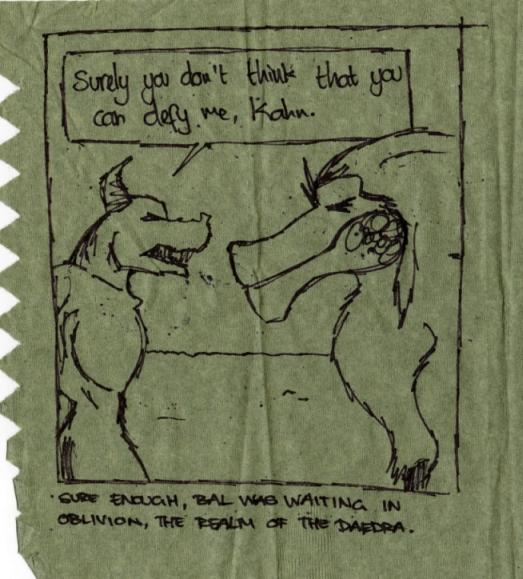 Surely you don't think that you
can defy me, Kahn.
SURE ENOUGH, BAL WAS WAITING IN
OBLIVION, THE REALM OF THE DAEDRA.